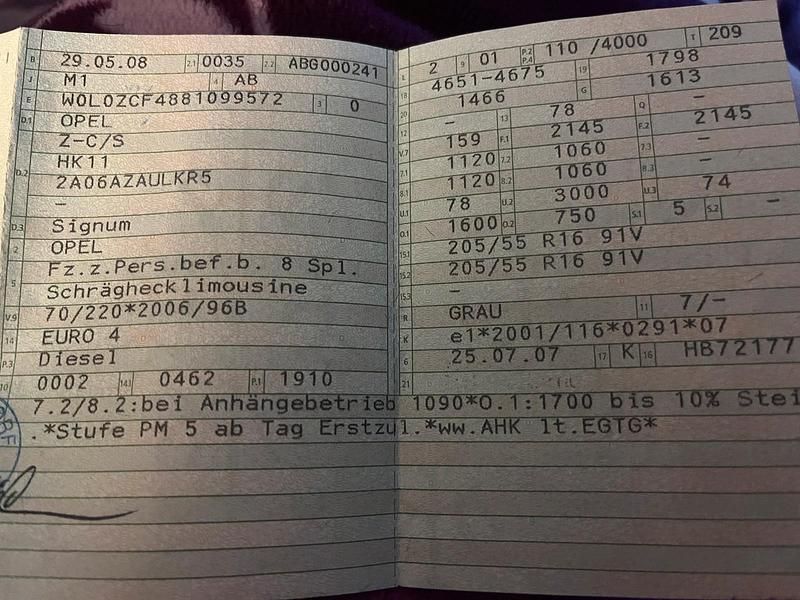 B 29.05.08 2.1 0035 2.2 ABG000241
J M1 4 AB
E W0L0ZCF4881099572 3 0
D.1 OPEL
Z-C/S
D.2 HK11
2A06AZAULKR5
–
D.3 Signum
2 OPEL
5 Fz.z.Pers.bef.b. 8 Spl.
Schräghecklimousine
V.9 70/220*2006/96B
14 EURO 4
P.3 Diesel
10 0002 14.1 0462 P.1 1910
L 2 9 01 P.2 P.4 110 /4000 T 209
18 4651-4675 19 1798
20 1466 G 1613
12 – 13 78 Q –
V.7 159 F.1 2145 F.2 2145
7.1 1120 7.2 1060 7.3 –
8.1 1120 8.2 1060 8.3 –
U.1 78 U.2 3000 U.3 74
O.1 1600 O.2 750 S.1 5 S.2 –
15.1 205/55 R16 91V
15.2 205/55 R16 91V
15.3 –
R GRAU 11 7/–
K e1*2001/116*0291*07
6 25.07.07 17 K 16 HB72177
21
7.2/8.2:bei Anhängebetrieb 1090*O.1:1700 bis 10% Stei
.*Stufe PM 5 ab Tag Erstzul.*ww.AHK lt.EGTG*